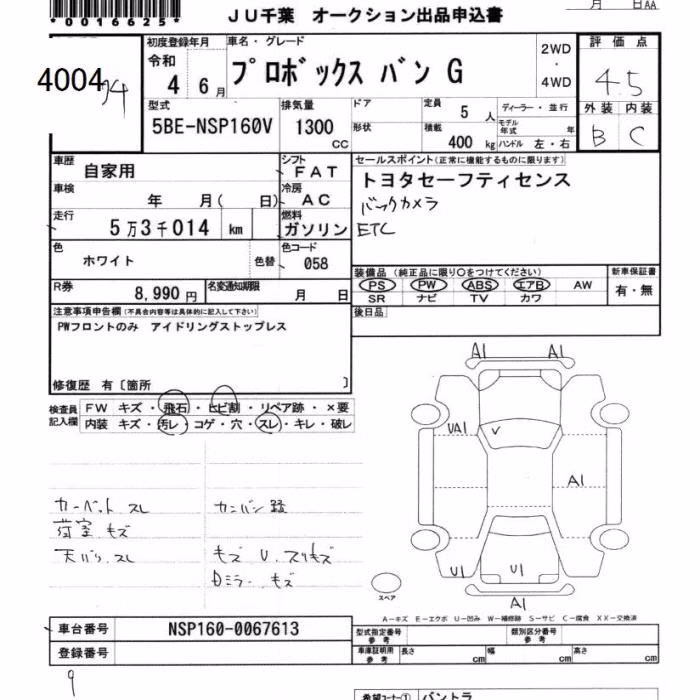 *0016625*
月 日AA
JU千葉 オークション出品申込書
4004
初度登録年月 車名・グレード
令和 4 年 6 月 プロボックス バン G
2WD ・ 4WD
評価点
4.5
外装 内装
B C
型式 排気量 ドア 定員 5 人 ディーラー・並行
5BE-NSP160V 1300 CC 形状 積載 400 kg モデル年式 年
ハンドル 左・右
車歴 自家用
シフト FAT
車検 年 月( 日)
冷房 AC
走行 5万3千014 km
燃料 ガソリン
色 ホワイト 色替
色コード 058
R券 8,990円 名変通知期限 月 日
セールスポイント(正常に機能するものに限ります)
トヨタセーフティセンス
バックカメラ
ETC
装備品(純正品に限り○をつけてください) 新車保証書
PS PW ABS エアB AW 有・無
SR ナビ TV カワ
後日品
注意事項申告欄(不具合内容等は具体的に記入して下さい)
PWフロントのみ アイドリングストップレス
修復歴 有〔箇所 〕
検査員記入欄
FW キズ・飛石・ヒビ割・リペア跡・×要
内装 キズ・汚レ・コゲ・穴・スレ・キレ・破レ
カーペット スレ カンバン跡
荷室 キズ
天バリ スレ キズ U. スリキズ
Dミラー キズ
A1 A1
UA1 V
A1
U1 U1
A1
スペア
A-キズ E-エクボ U-凹み W-補修跡 S-サビ C-腐食 XX-交換済
車台番号 NSP160-0067613
登録番号
型式指定番号 参考 類別区分番号 参考
車庫証明用 参考 長さ cm 幅 cm 高さ cm
9
希望コーナー① バントラ